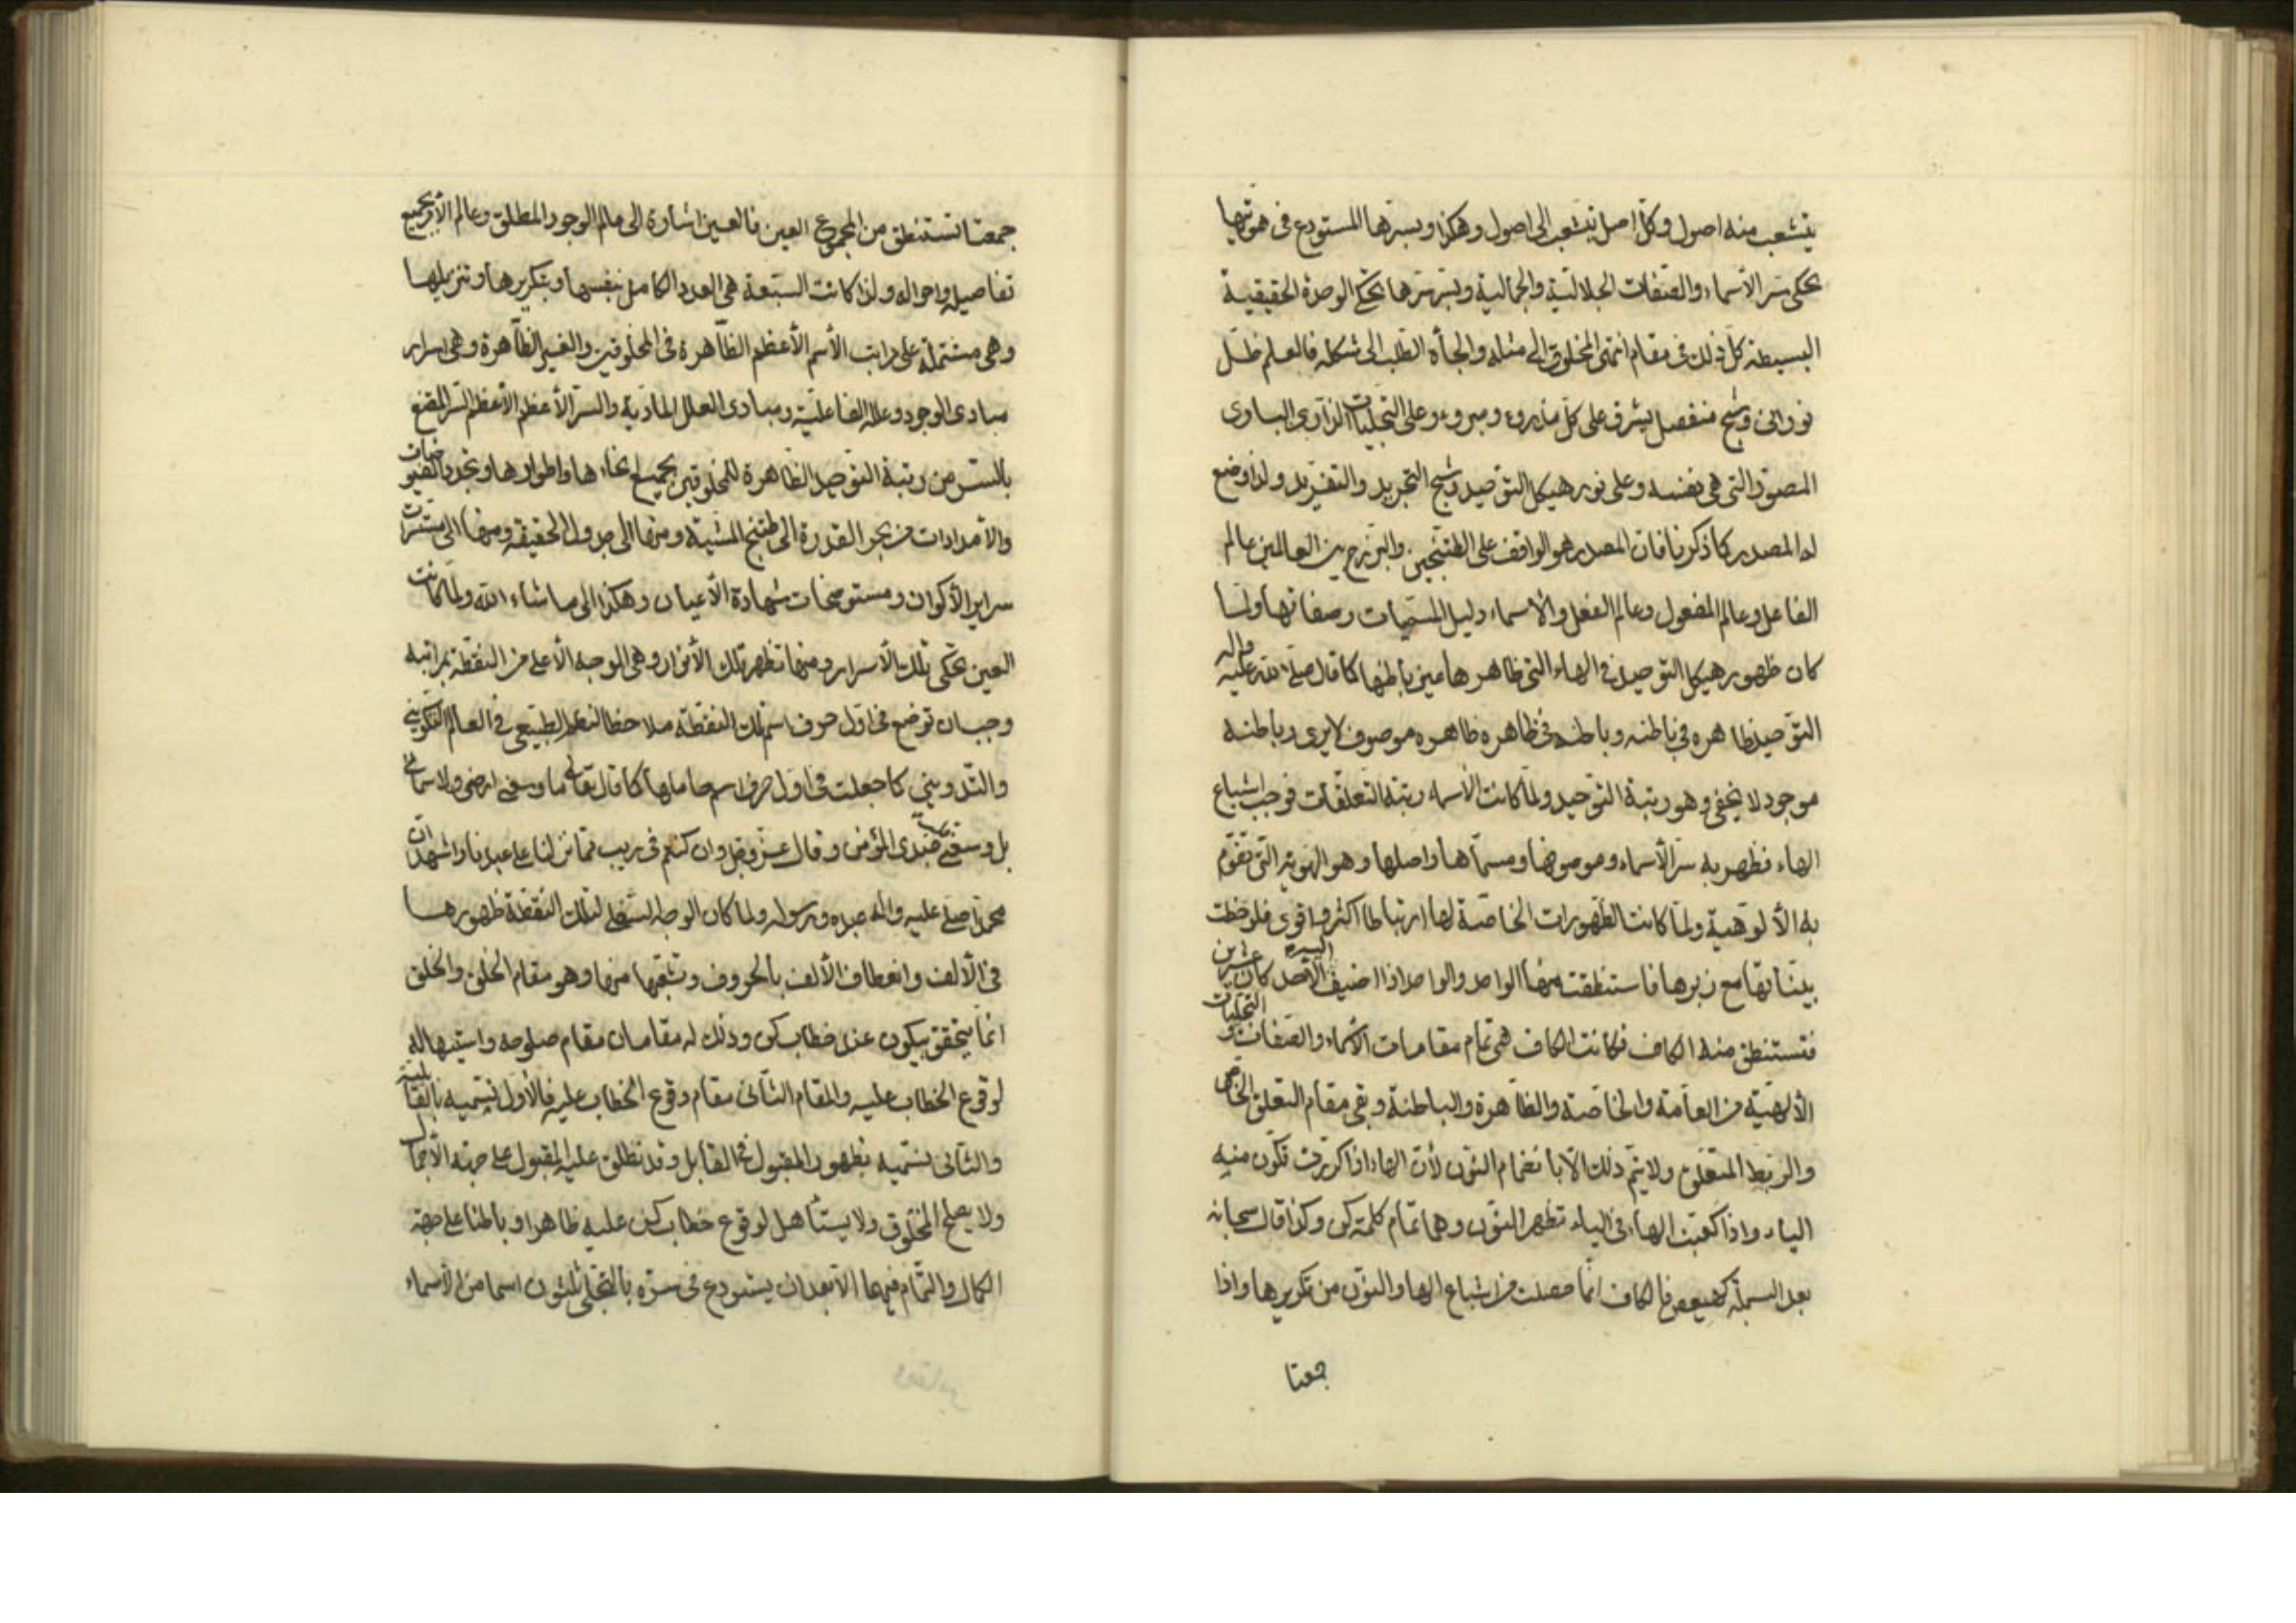 يتشعب منه اصول وكل اصل يتشعب الى اصول وهكذا وبسرها المستودع في هويتها
تحكي سر الأسماء والصفات الجلالية والجمالية وبسر سرها تحكي الوحدة الحقيقية
البسيطة كل ذلك في مقام انتهى المخلوق الى مثله والجأه الطلب الى شكله فالعلم ظل
نوراني وشبح منفصل يشرق على كل مذروء ومبروء وعلى التجليات الباري
المصور التي هي نفسه وعلى نور هيكل التوحيد وشبح التجريد والتفريد ولذا وضع
له المصدر كما ذكرنا فان المصدر هو الواقف على الطتنجين والبرزخ بين العالمين عالم
الفاعل وعالم المفعول وعالم الفعل والأسماء دليل المسميات وصفاتها ولما
كان ظهور هيكل التوحيد في الهاء التي ظاهرها عين باطنها كما قال صلى الله عليه واله
التوحيد ظاهره في باطنه وباطنه في ظاهره ظاهره موصوف لا يرى وباطنه
موجود لا يخفى وهو رتبة التوحيد ولما كانت الأسماء رتبة التعلقات فوجب اشباع
الهاء فظهر به سر الأسماء وموصوفها ومسماها واصلها وهو الهوية التي تقوم
به الألوهية ولما كانت الظهورات الخاصة لها ارتباطا اكثر واقوى فلوحظت
بيناتها مع زبرها فاستنطقت منها الواحد والواحد اذا اضيف اليه الأحد كان عشرين
فتستنطق منه الكاف فكانت الكاف هي تمام مقامات الأسماء والصفات والتجليات
الألهية من العامة والخاصة والظاهرة والباطنة وبقي مقام التعلق الخاص
والربط المتعلق ولا يتم ذلك الا بانضمام النون لأن الهاء اذا كررت تكون منه
الياء واذا كعبت الهاء في الياء تظهر النون وهما تمام كلمة كن وكذا قال سبحانه
بعد البسملة كهيعص فالكاف انما حصلت من اشباع الهاء والنون من تكريرها واذا
جمعتا
جمعتا تستنطق من المجموع العين فالعين اشارة الى عالم الوجود المطلق وعالم الأمر بجميع
تفاصيله واحواله ولذا كانت السبعة هي العدد الكامل بنفسها وبتكريرها وتنزيلها
وهي مشتملة على مراتب الأسم الأعظم الظاهرة في المخلوقين والغير الظاهرة وهي اسرار
مبادي الوجود وعلله الفاعلية ومبادي العلل المادية والسر الأعظم الأعظم السر المقنع
بالسر من رتبة التوحيد الظاهرة للمخلوقين بجميع انحاءها واطوارها وتجدد الفيوضات
والأمدادات من بحر القدرة الى طتنج المشية ومنها الى جدول الحقيقة ومنها الى مستسرات
سراير الأكوان ومستوضحات شهادة الأعيان وهكذا الى ما شاء الله ولما كانت
العين تحكي تلك الأسرار ومنها تظهر تلك الأنوار وهي الوجه الأعلى من النقطة بمراتبه
وجب ان توضع في اول حرف اسم تلك النقطة ملاحظا للنظم الطبيعي في العالم التكويني
والتدويني كما جعلت في اول حرف اسم حاملها كما قال تعالى ما وسعني ارضي ولا سمائي
بل وسعني قلب عبدي المؤمن وقال عز وجل وان كنتم في ريب مما نزلنا على عبدنا واشهد ان
محمدا صلى عليه واله عبده ورسوله ولما كان الوجه لتلك النقطة ظهورها
في الألف وانعطاف الألف بالحروف وتشعبها منها وهو مقام الخلق والخلق
انما يتحقق بيكون عند خطاب كن وذلك له مقامان مقام صلوحه واستيهاله
لوقوع الخطاب عليه والمقام الثاني مقام وقوع الخطاب عليه فالأول نسميه بالقابلية
والثاني نسميه بظهور المقبول في القابل وقد نطلق عليه المقبول على جهة الأجمال
ولا يصلح المخلوق ولا يستأهل لوقوع خطاب كن عليه ظاهرا وباطنا على جهة
الكمال والتمام فيهما الا بعد ان يستودع في سره بالتجلي ثلثون اسما من الأسماء